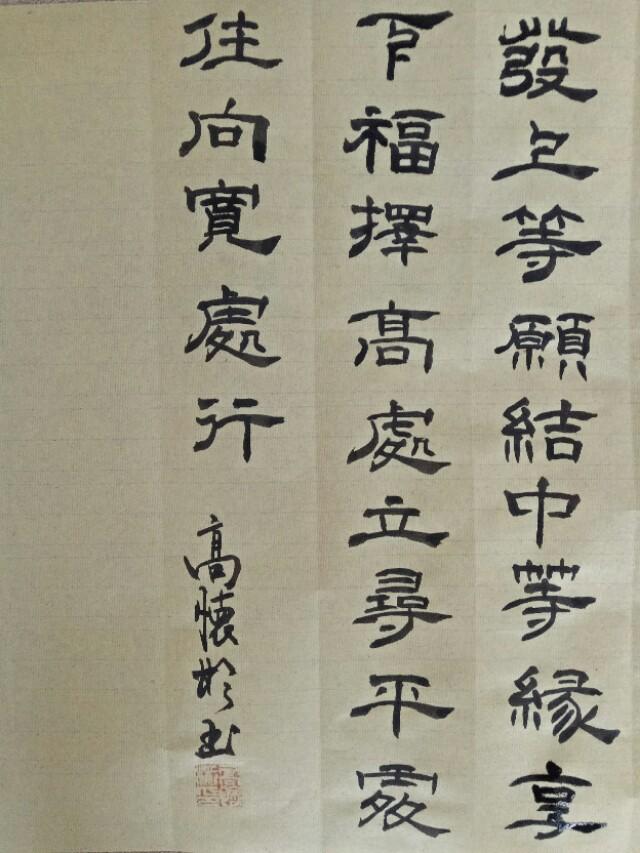 發上等願結中等緣享
下福擇高處立尋平處
住向寬處行
高懷 书